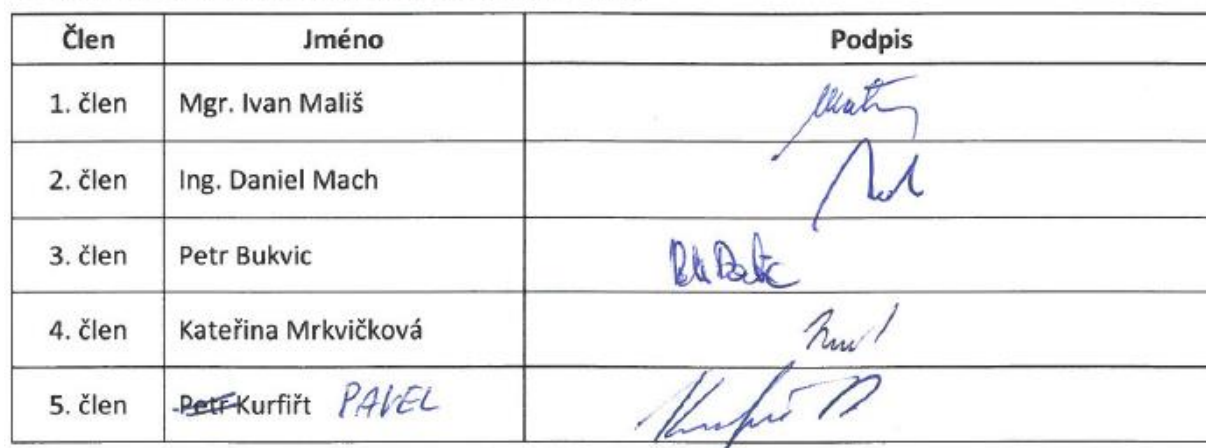 Člen Jméno Podpis
1. člen Mgr. Ivan Mališ
2. člen Ing. Daniel Mach
3. člen Petr Bukvic
4. člen Kateřina Mrkvičková
5. člen Petr Kurfiřt PAVEL